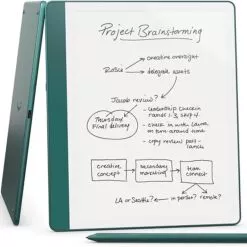 Project Brainstorming
creative oversight
Rufice
delegate assets
Jacob review?
Thursday
Final delivery
• leadership check in
rounds 1, 3, skip 4
• check in with
on turn-around time
• copy review post-
launch
creative
concept
secondary
marketing
team
connect
LA or Seattle?
in person? remote?